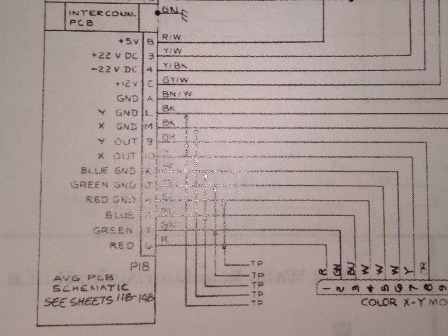 INTERCONN. GN
PCB
+5V B R/W
+22 V DC 3 Y/W
-22 V DC 4 Y/BK
+12V C GY/W
GND A BN/W
Y GND L BK
X GND M BK
Y OUT 9 OR
X OUT
BLUE GND
GREEN GND
RED GND
BLUE
GREEN
RED R
P18
AVG PCB
SCHEMATIC
SEE SHEETS 11B-14B
TP
TP
TP
TP
TP
R GN BU W W W Y
1 2 3 4 5 6 7 8 9
COLOR X-Y MO